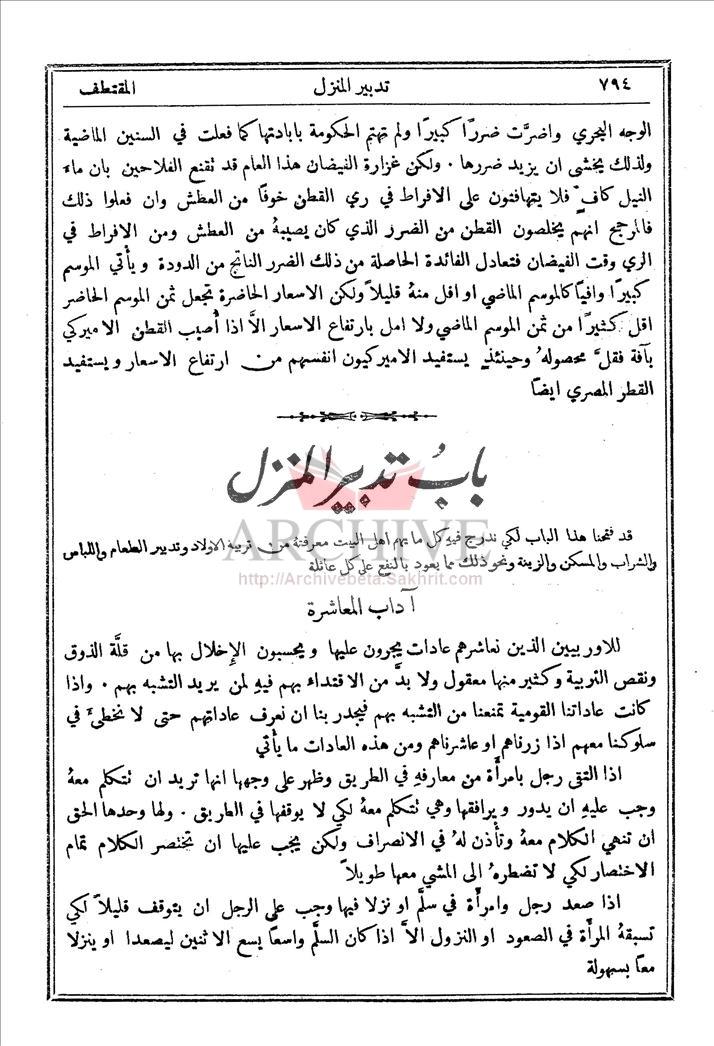 ٧٩٤ تدبير المنزل المقتطف
الوجه البحري واضرَّت ضررًا كبيرًا ولم تهتم الحكومة بابادتها كما فعلت في السنين الماضية
ولذلك يخشى ان يزيد ضررها . ولكن غزارة الفيضان هذا العام قد تقنع الفلاحين بان ماء
النيل كافٍ فلا يتهافتون على الافراط في ري القطن خوفًا من العطش وان فعلوا ذلك
فالمرجح انهم يخلصون القطن من الضرر الذي كان يصيبهُ من العطش ومن الافراط في
الري وقت الفيضان فتعادل الفائدة الحاصلة من ذلك الضرر الناتج من الدودة ويأتي الموسم
كبيرًا وافيًا كالموسم الماضي او اقل منهُ قليلاً ولكن الاسعار الحاضرة تجعل ثمن الموسم الحاضر
اقل كثيرًا من ثمن الموسم الماضي ولا امل بارتفاع الاسعار الاَّ اذا أُصيب القطن الاميركي
بآفة فقلَّ محصولهُ وحينئذٍ يستفيد الاميركيون انفسهم من ارتفاع الاسعار ويستفيد
القطر المصري ايضًا
بابُ تدبير المنزل
قد فتحنا هذا الباب لكي ندرج فيهِ كل ما يهم اهل البيت معرفتهُ من تربية الاولاد وتدبير الطعام واللباس
والشراب والمسكن والزينة ونحو ذلك مما يعود بالنفع على كل عائلة
ARCHIVE
http://Archivebeta.Sakhrit.com
آداب المعاشرة
للاوربيين الذين نعاشرهم عادات يجرون عليها ويحسبون الإخلال بها من قلَّة الذوق
ونقص التربية وكثير منها معقول ولا بدَّ من الاقتداء بهم فيهِ لمن يريد التشبه بهم . واذا
كانت عاداتنا القومية تمنعنا من التشبه بهم فيجدر بنا ان نعرف عاداتهم حتى لا نخطئَ في
سلوكنا معهم اذا زرناهم او عاشرناهم ومن هذه العادات ما يأتي
اذا التقى رجل بامرأة من معارفهِ في الطريق وظهر على وجهها انها تريد ان تتكلم معهُ
وجب عليهِ ان يدور ويرافقها وهي تتكلم معهُ لكي لا يوقفها في الطريق . ولها وحدها الحق
ان تنهي الكلام معهُ وتأذن لهُ في الانصراف ولكن يجب عليها ان تختصر الكلام تمام
الاختصار لكي لا تضطرهُ الى المشي معها طويلاً
اذا صعد رجل وامرأة في سلَّم او نزلا فيها وجب على الرجل ان يتوقف قليلاً لكي
تسبقهُ المرأة في الصعود او النزول الاَّ اذا كان السلَّم واسعًا يسع الاثنين ليصعدا او ينزلا
معًا بسهولة